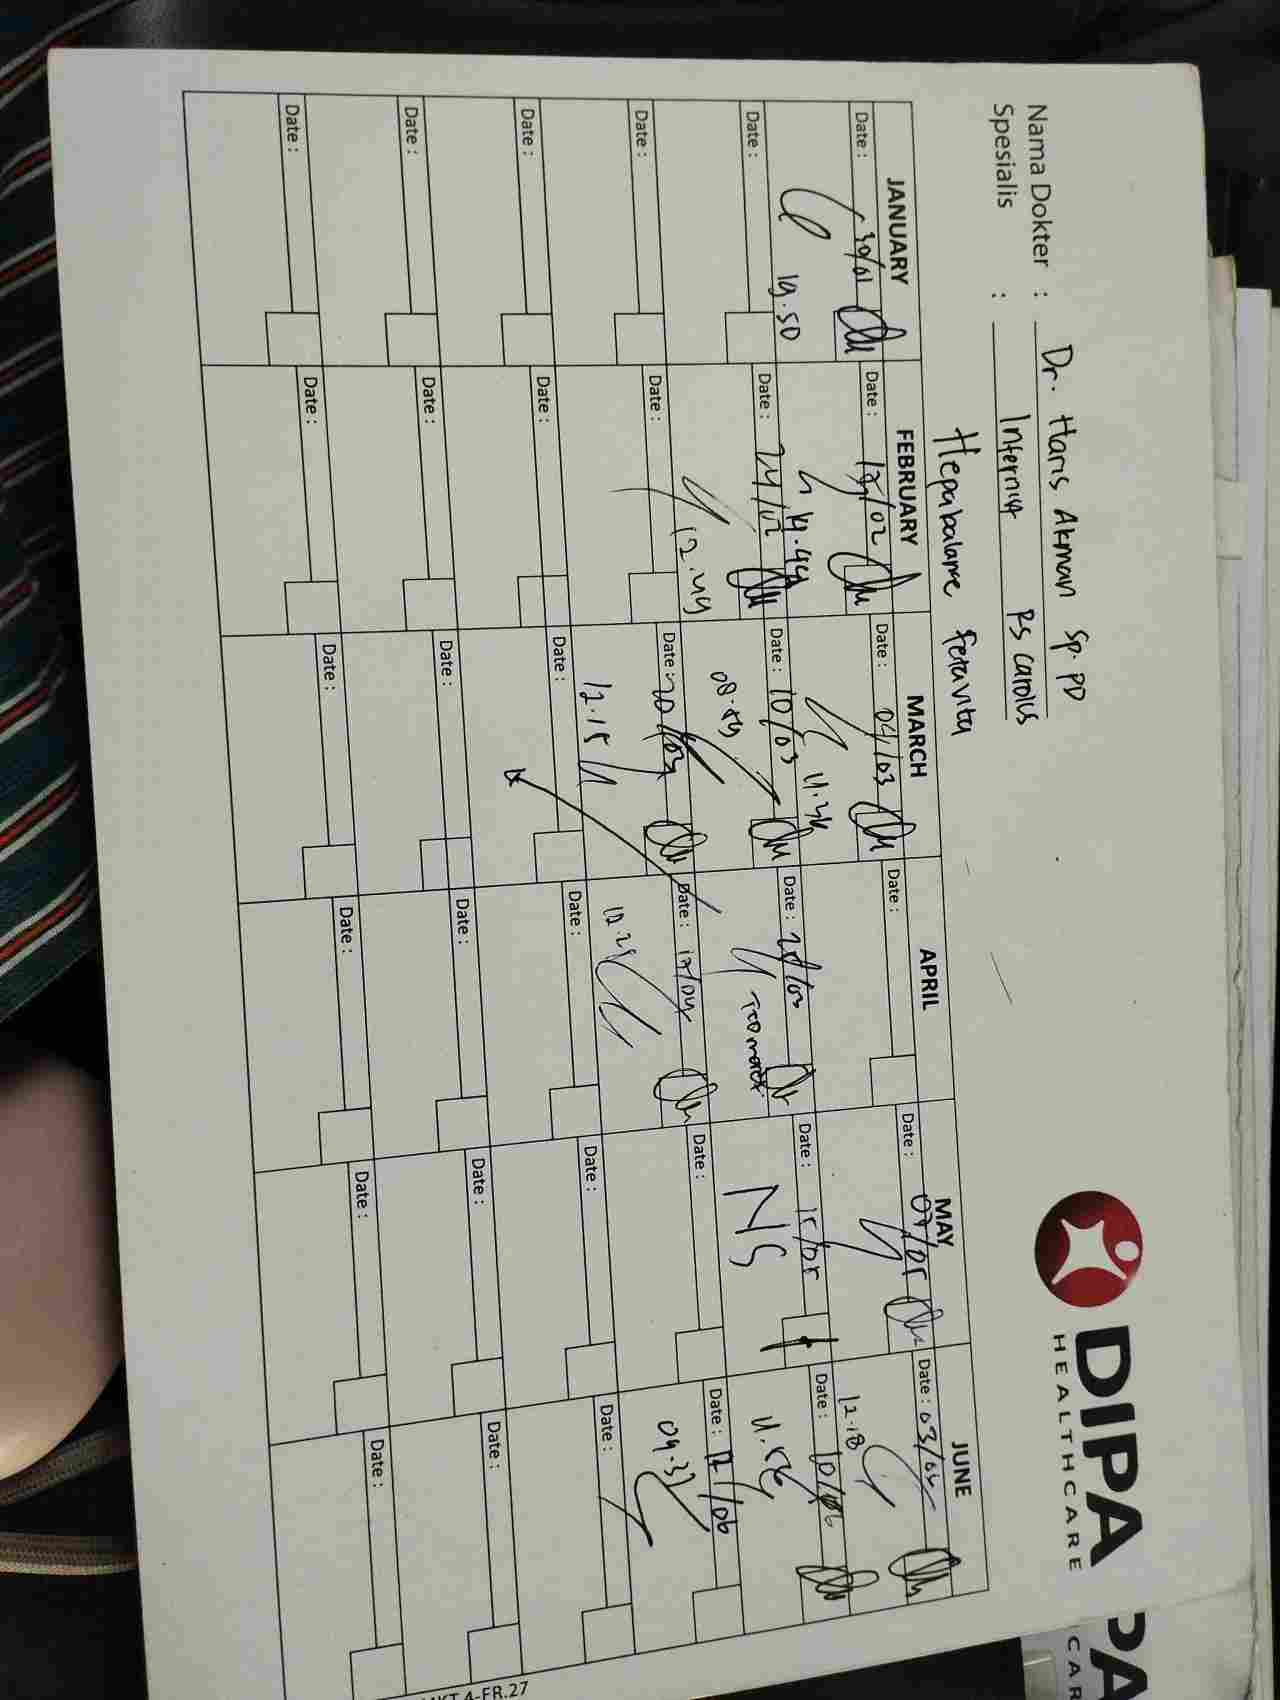 DIPA
HEALTHCARE
Nama Dokter : Dr. Haris Akman Sp. PD
Spesialis : Internist RS Carolus
Hepabalance Feravita
JANUARY FEBRUARY MARCH APRIL MAY JUNE
Date : 30/01 Date : 12/02 Date : 04/03 Date : Date : 07/05 Date : 03/06
19.50 19.49 11.36 12.18
Date : Date : 24/02 Date : 10/03 Date : Date : 15/05 Date : 10/06
12.49 08.49 NS 11.56
Date : Date : Date : 20/03 Date : 17/04 Date : Date : 17/06
12.15 09.37
Date : Date : Date : Date : Date : Date :
Date : Date : Date : Date : Date : Date :
Date : Date : Date : Date : Date : Date :
4-FR.27